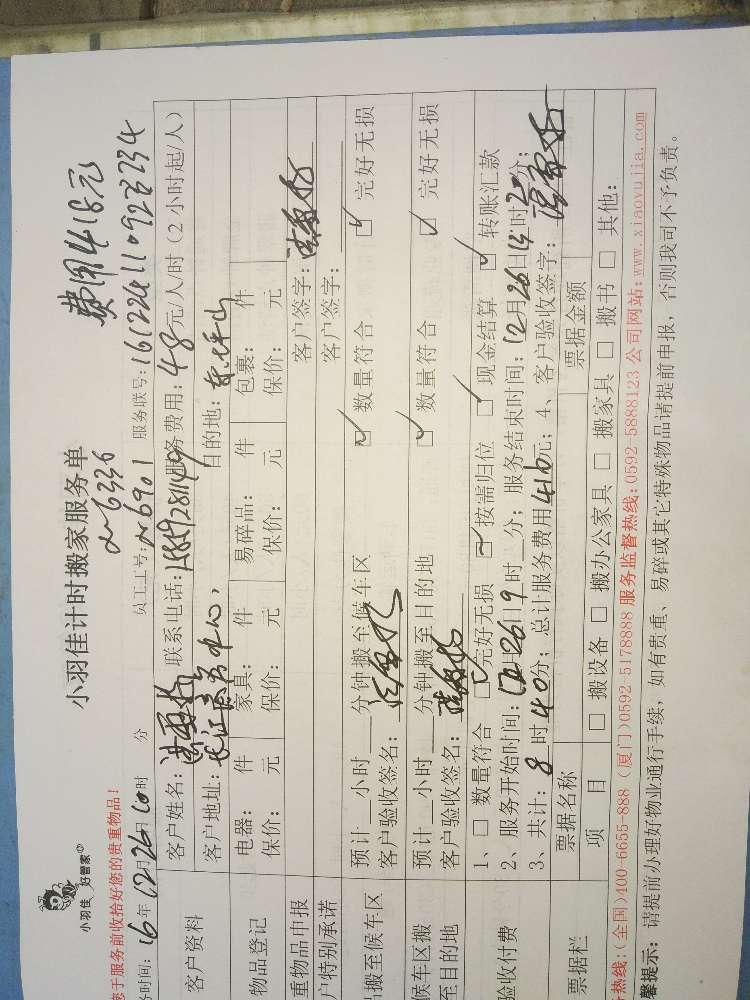 小羽佳 好管家
小羽佳计时搬家服务单
费用418元
您于服务前收拾好您的贵重物品！
务时间：16年12月26日10时 分 员工工号： 服务联号：16122411092234
客户资料
客户姓名： 联系电话： 服务费用：48元/人/时（2小时起/人）
客户地址： 目的地：
物品登记
电器： 件 家具： 件 易碎品： 件 包裹： 件
保价： 元 保价： 元 保价： 元 保价： 元
重物品申报 客户签字：
户特别承诺 客户签字：
搬至候车区
预计__小时__分钟搬至候车区 数量符合 完好无损
客户验收签名：
候车区搬至目的地
预计__小时__分钟搬至目的地 数量符合 完好无损
客户验收签名：
验收付费
1、 数量符合 完好无损 按需归位 现金结算 转账汇款
2、服务开始时间：12月26日9时__分；服务结束时间：12月26日14时20分；
3、共计：8时40分；总计服务费用416元；4、客户验收签字：
票据栏 票据名称 票据金额
项 目 搬设备 搬办公家具 搬家具 搬书 其他：
热线：(全国)400-6655-888 (厦门)0592 5178888 服务监督热线：0592 5888123 公司网站：www.xiaoyujia.com
馨提示：请提前办理好物业通行手续，如有贵重、易碎或其它特殊物品请提前申报，否则我司不予负责。